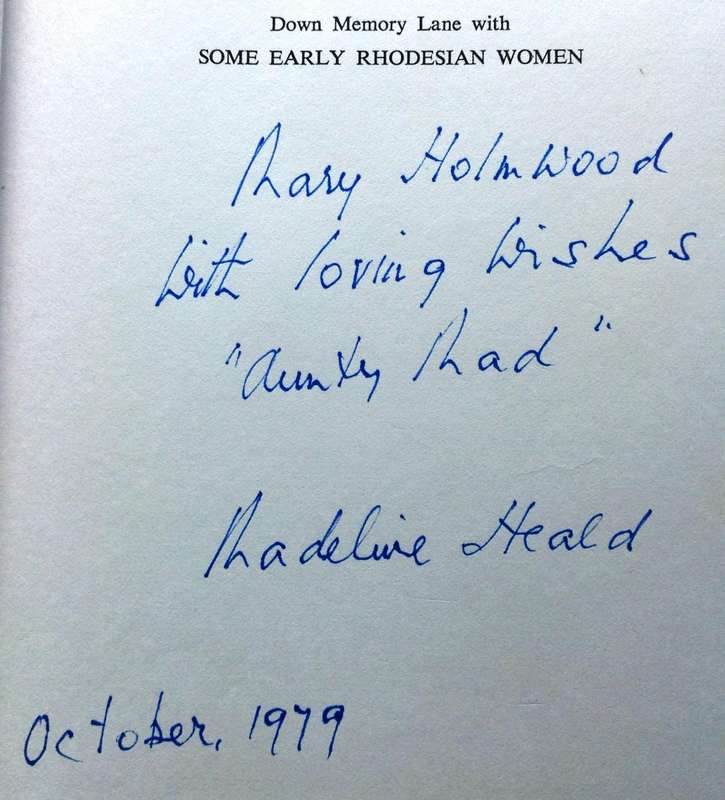 Down Memory Lane with
SOME EARLY RHODESIAN WOMEN
Mary Holmwood
with loving wishes
"Aunty Mad"
Madeline Heald
October, 1979